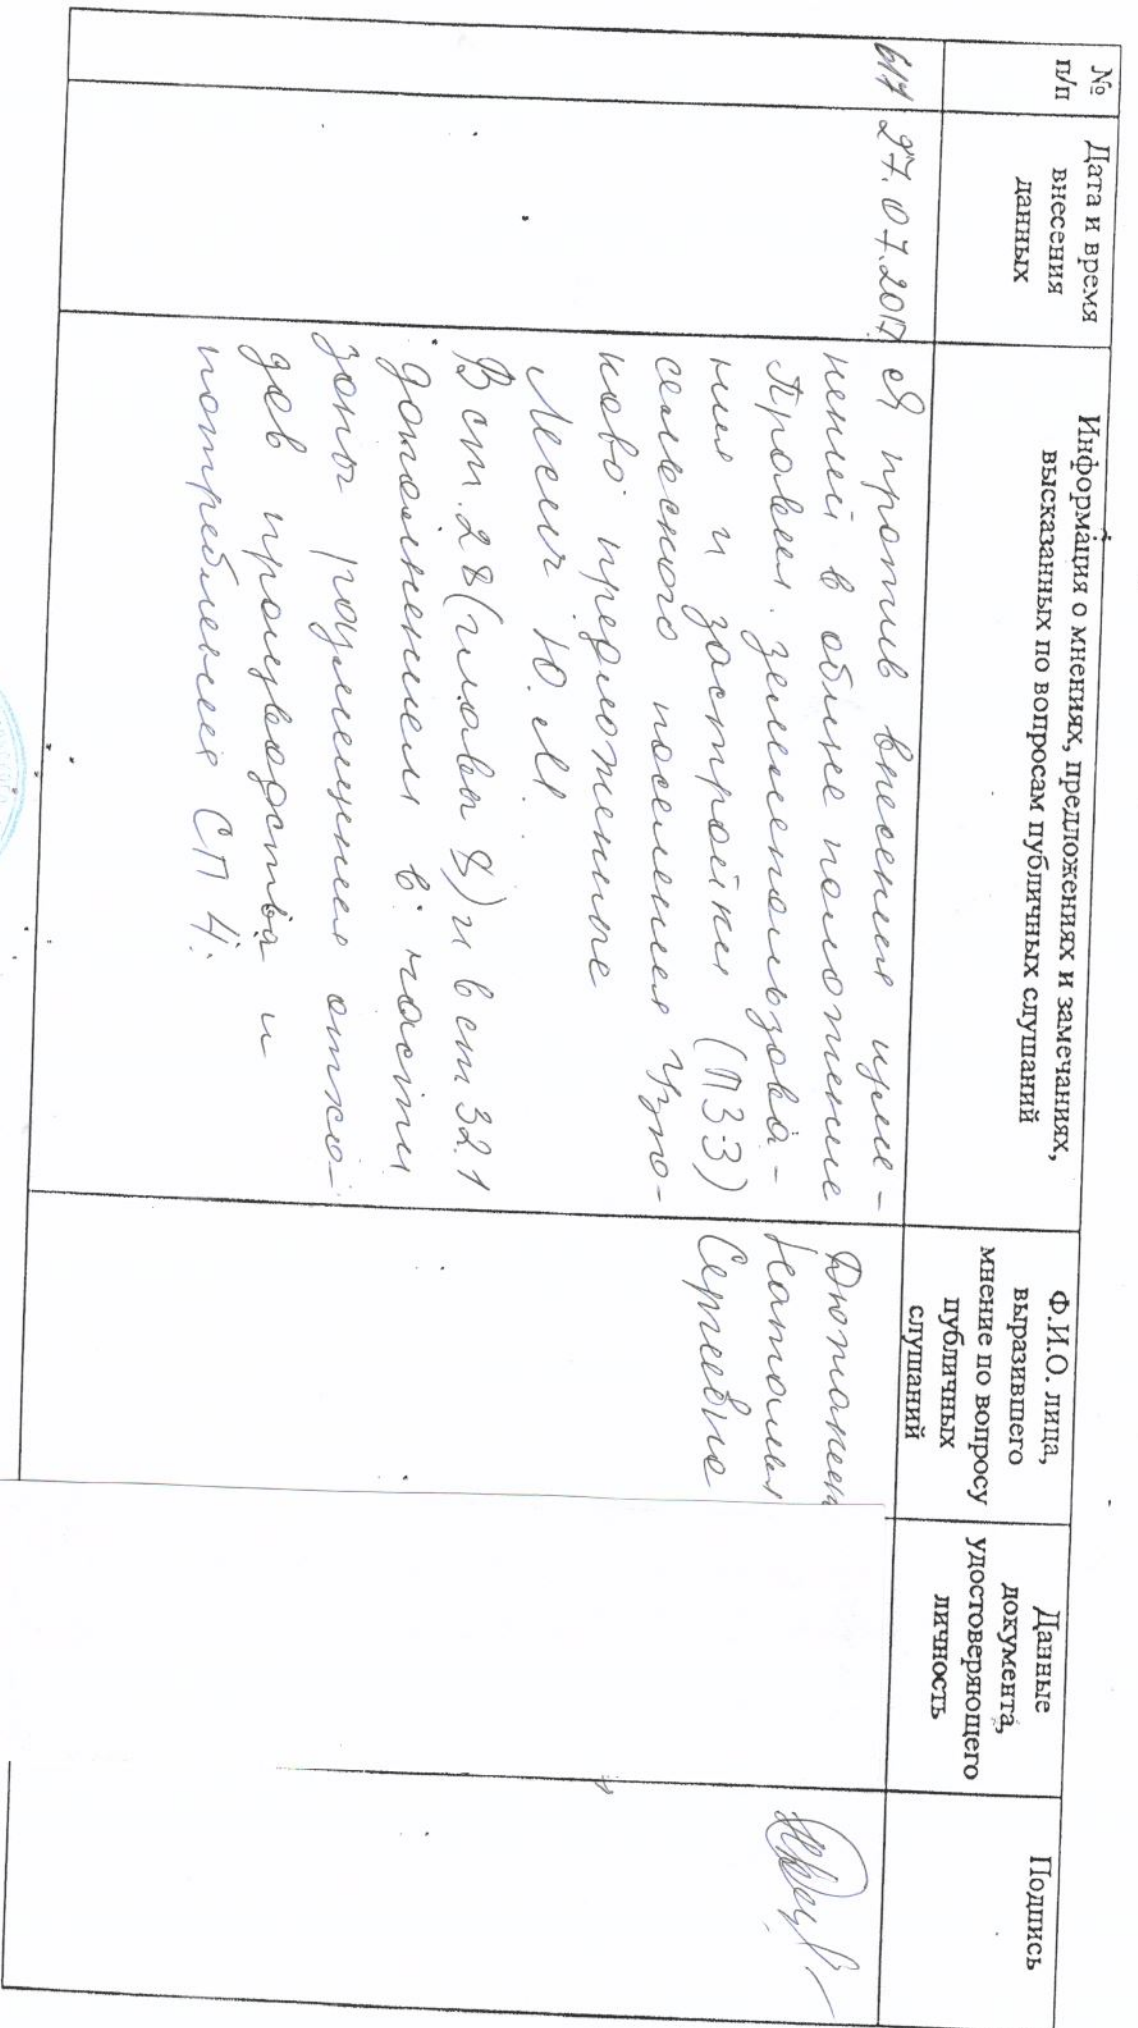 №
п/п
Дата и время
внесения
данных
Информация о мнениях, предложениях и замечаниях,
высказанных по вопросам публичных слушаний
Ф.И.О. лица,
выразившего
мнение по вопросу
публичных
слушаний
Данные
документа,
удостоверяющего
личность
Подпись
617
27.07.2017
Я против внесения изме-
нений в общие положение
Правил землепользова-
ния и застройки (ПЗЗ)
сельского поселения
ново предложенные
Лесич Ю.М.
В ст. 28 (глава 8) и в ст 32.1
дополнением в части
зоны размещения отхо-
дов производства и
потребления СП 4.
Наталья
Сергеевна